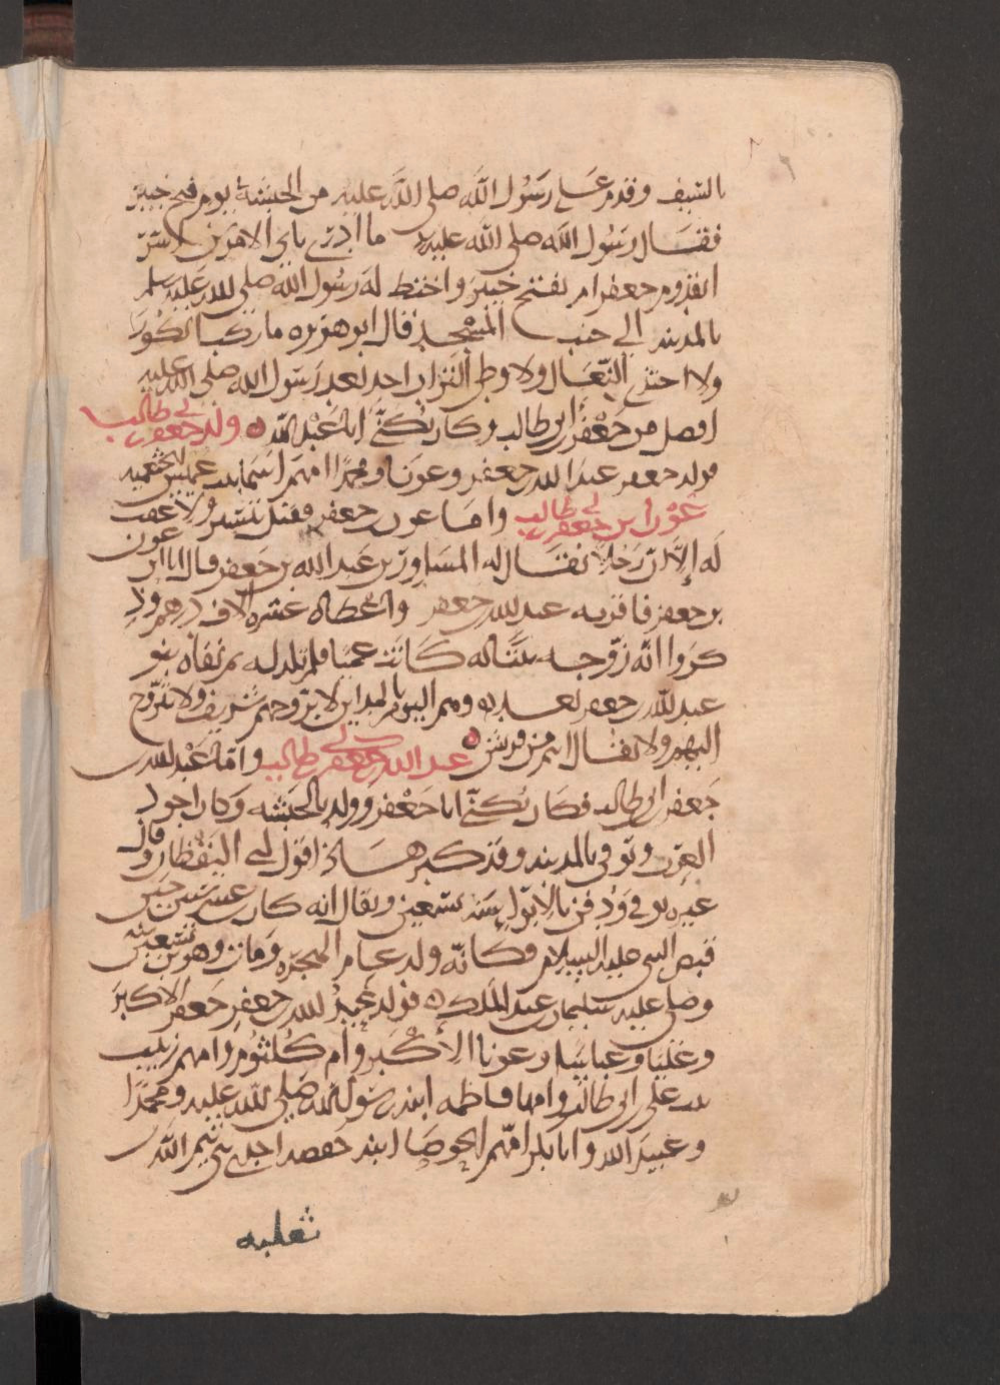 بالسيف وقدم على رسول الله صلى الله عليه من الحبشة يوم فتح خيبر
فقال رسول الله صلى الله عليه ما ادري باي الامرين اسر
ابقدوم جعفر ام بفتح خيبر واختط له رسول الله صلى الله عليه وسلم
بالمدينه الى جنب المسجد قال ابو هريره ما ركب الكور
ولا احتذى النعال ولا وطى التراب احد بعد رسول الله صلى الله عليه
افضل من جعفر بن ابي طالب وكان يكنى ابا عبد الله ه ولد جعفر بن ابي طالب
فولد جعفر عبد الله بن جعفر وعونا ومحمدا امهم اسما بنت عميس الخثعميه
عون ابن جعفر بن ابي طالب واما عون بن جعفر فقتل بتستر ولا عقب
له إلا أن رجلا يقال له المساور بن عبد الله بن جعفر قال انا ابن عون
بن جعفر فاقر به عبد الله بن جعفر واعطاه عشرة الاف درهم
كروا انه زوجه بنتا له كانت عميا فلم تلد له ثم نفاه بنو
عبد الله بن جعفر بعد ه وهم اليوم بالمداين لا يزوجهم شريف ولا يتزوج
اليهم ولا يقال انهم من قريش ه عبد الله بن جعفر بن ابي طالب واما عبد الله بن
جعفر بن ابي طالب فكان يكنى ابا جعفر وولد بالحبشه وكان اجود
العرب وتوفي بالمدينه وقد كبر هذا قول ابي اليقظان وقال
غيره توفي ودفن بالابوا سنه تسعين ويقال انه كان ابن عشر سنين حين
قبض النبي عليه السلام وكانه ولد عام الهجره ومات وهو ابن تسعين سنه
وصلى عليه سليمان بن عبد الملك ه فولد عبد الله بن جعفر جعفر الاكبر
وعليا وعباسا وعونا الأكبر وأم كلثوم وامهم زينب
بنت علي بن ابي طالب وامها فاطمه ابنه رسول الله صلى الله عليه ومحمدا
وعبيد الله وابا بكر امهم الخوصا ابنه خصفه احد بني تيم الله بن
ثعلبه